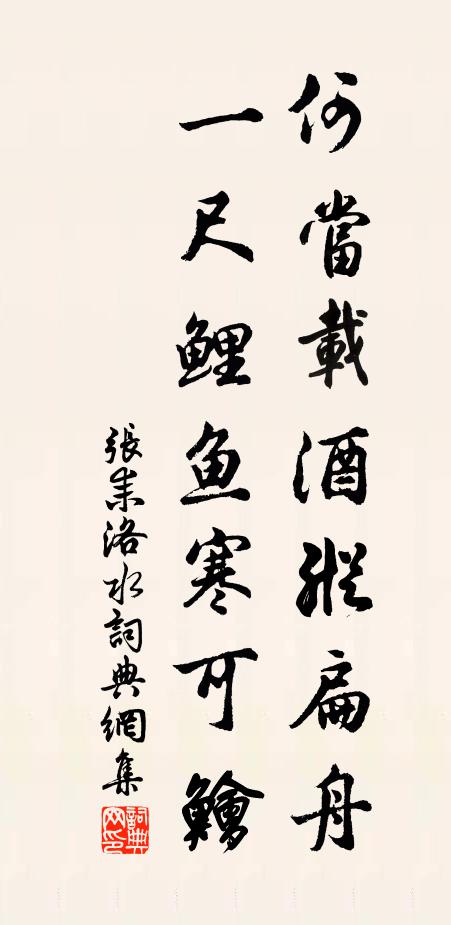 何當載酒縱扁舟
一尺鯉魚寒可鱠
張耒洛水詞典網集
詞典網印